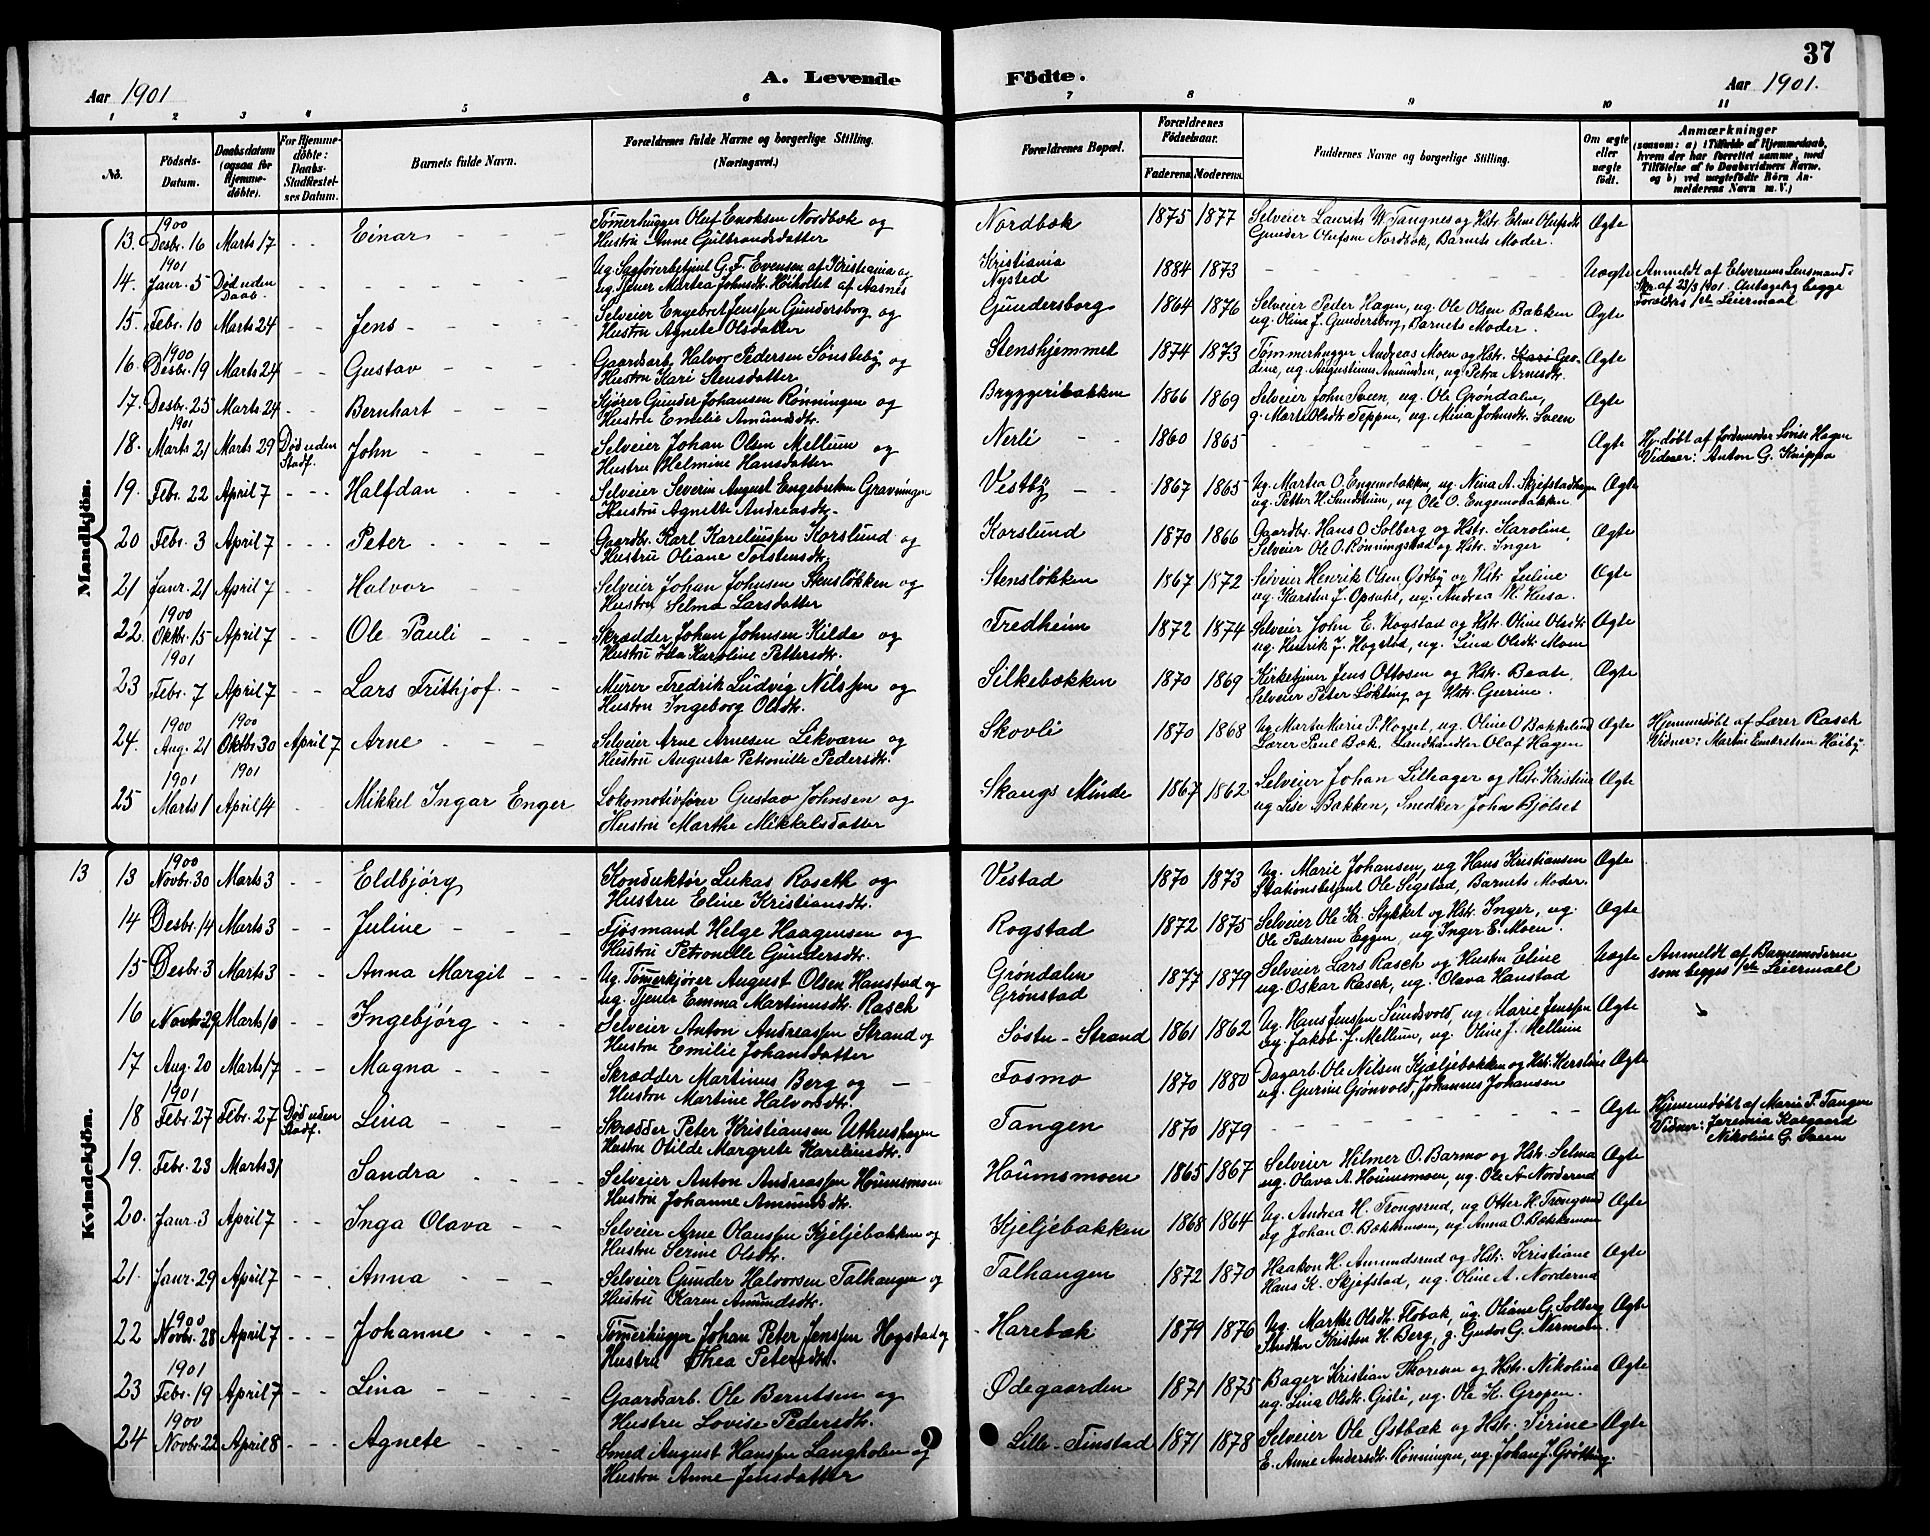 37
A. Levende Födte.
Aar 1901
Aar 1901.
1 2 3 4 5 6 7 8 9 10 11
No.
Födsels-
Datum.
Daabsdatum
(ogsaa for
Hjemme-
döbte).
For Hjemme-
döbte:
Daabs-
Stadfæstel-
ses Datum.
Barnets fulde Navn.
Forældrenes fulde Navne og borgerlige Stilling.
(Næringsvei.)
Forældrenes Bopæl.
Forældrenes
Födselsaar.
Faderens. Moderens.
Faddernes Navne og borgerlige Stilling.
Om ægte
eller
uægte
födt.
Anmærkninger
(saasom: a) i Tilfælde af Hjemmedaab,
hvem der har forrettet samme, med
Tilföielse af to Daabsvidners Navne,
og b) ved uægtefödte Börn An-
melderens Navn m. V.)
Mandkjön.
1900
13. Desbr. 16 Marts 17 - - Einar Tømmerhugger Oluf Enoksen Nordbæk og
Hustru Anne Gulbrandsdatter
Nordbæk 1875 1877 Selveier Laurits W. Tangnes og Hstr. Eline Olufsdtr
Gunder Olufsen Nordbæk, Barnets Moder. Ægte
1901
14. Janr. 5 Død uden
Daab. Ug. Sagførerbetjent G. F. Evensen af Kristiania og
ug. Tjener Martea Johnsdtr. Höiholtet af Aasnes
Kristiania
Nysted 1884 1873 Uægte Anmeldt af Elverums Lensmand i
Skr. af 23/3 1901. Antagelig begge
Forældres 1ste Leiermaal
15. Febr. 10 Marts 24 - - Jens Selveier Engebret Jenssen Gundersborg og
Hustru Agnete Olsdatter
Gundersborg 1864 1876 Selveier Peder Hagen, ug. Ole Olsen Bakken
ug. Oline J. Gundersborg, Barnets Moder. Ægte
1900
16. Desbr. 19 Marts 24 - - Gustav Gaardsarb. Halvor Pedersen Sønsteby og
Hustru Kari Stensdatter
Stenshjemmet 1874 1873 Tømmerhugger Andreas Moen og Hstr.
ug. Augustinus Amundsen, ug. Petra Arnesdtr. Ægte
17. Desbr. 25 Marts 24 - - Bernhart Kjører Gunder Johansen Rønningen og
Hustru Emelie Amundsdtr.
Bryggeribakken 1866 1869 Selveier John Sveen, ug. Ole Grøndalen,
g. Marte Olsdtr. Teppen, ug. Mina Johnsdtr. Sveen Ægte
1901
18. Marts 21 Marts 29 Død uden
Stadf. John Selveier Johan Olsen Mellum og
Hustru Helmine Hansdatter
Nerli 1860 1865 Ægte Hj. døbt af Jordemoder Lovise Hagen
Vidner: Anton G. Knippa
19. Febr. 22 April 7 Halfdan Selveier Severin August Engebretsen Gravningen
Hustru Agnette Andreasdtr.
Vestby 1867 1865 Ug. Martea O. Engemobakken, ug. Nina A. Skjefstadhagen
ug. Petter H. Sundheim, ug Ole O. Engemobakken Ægte
20 Febr. 3 April 7 - - - Peter Gaardbr. Karl Kareliussen Korslund og
Hustru Oliane Torstensdtr.
Korslund 1870 1866 Gaardbr. Hans O. Solberg og Hstr. Karoline,
Selveier Ole O. Rønningstad og Hstr. Inger Ægte
21 Janr. 21 April 7 - - Halvor Selveier Johan Johnsen Stensløkken og
Hustru Selma Larsdatter
Stensløkken 1867 1872 Selveier Henrik Olsen Østby og Hstr. Juline
ug. Karsten J. Opsahl, ug. Andrea M. Kusa Ægte
1900
22. Oktbr. 15 April 7 - - Ole Pauli Skrædder Johan Johnsen Kilde og
Hustru Ida Karoline Pettersdtr.
Fredheim 1872 1874 Selveier John E. Hogstad og Hstr. Oline Olsdtr
ug. Henrik J. Hogstad, ug. Lina Olsdtr. Moen Ægte
1901
23 Febr. 7 April 7 - - Lars Frithjof. Murer Fredrik Ludvig Nilssen og
Hustru Ingeborg Olsdtr.
Silkebækken 1870 1869 Kirketjener Jens Ottosen og Hstr. Beate,
Selveier Peter Løkting og Hstr. Gurine. Ægte
1900 1900
24. Aug. 21 Oktbr 30 April 7 Arne Selveier Arne Arnesen Lekværn og
Hustru Augusta Petronille Pedersdtr.
Skovli 1870 1868 Ug. Marte Marie P. Hogset, ug. Oline O Bakkelund
Lærer Paul Bæk, Landhandler Olaf Hagen Ægte Hjemmedøbt af Lærer Rasch
Vidner: Martin Høiby.
1901 1901
25 Marts 1 April 14 Mikkel Ingar Enger Lokomotivfører Gustav Johnsen og
Hustru Marthe Mikkelsdatter
Skaugs Minde 1867 1862 Selveier Johan Lilhager og Hstr. Kristine
ug Lise Bakken, Snedker John Bjölset Ægte
Kvindekjön.
1900
13 13 Novbr. 30 Marts 3 - - Eldbjörg Konduktør Lukas Roseth og
Hustru Eline Kristiansdtr.
Vestad 1870 1873 Ug. Marie Johansen, ug Hans Kristiansen
Stationsbetjent Ole Sigstad, Barnets Moder. Ægte
14 Desbr. 14 Marts 3 - - Juline Fjösmand Helge Haagensen og
Hustru Petronelle Gundersdtr.
Rogstad 1872 1875 Selveier Ole Kr. Stykket og Hstr. Inger, ug.
Ole Pedersen Eggen, ug Inger E. Moen. Ægte
15 Desbr. 3 Marts 3 - - Anna Margit Ug. Tømmerkjører August Olsen Hanstad og
ug. Tjener Emma Martinusdtr. Rasch
Grøndalen
Grønstad 1877 1879 Selveier Lars Rasch og Hustru Eline
ug. Oskar Rasch, ug. Olava Hanstad Uægte Anmeldt af Barnemoderen
som begges 1ste Leiermaal
16 Novbr. 29 Marts 10 - - Ingebjörg Selveier Anton Andreassen Strand og
Hustru Emilie Johansdatter
Søstu-Strand 1861 1862 Ug. Hans Jenssen Sundsvold, ug Marie Jenssen
ug. Jakob J. Mellum, ug. Oline J. Mellum Ægte
17 Aug. 20 Marts 17 - - Magna Skrædder Martinus Berg og
Hustru Martine Halvorsdtr.
Fosmo 1870 1880 Dagarb. Ole Nilsen Kjæljebakken og Hstr. Kerstine
ug. Gurine Grønvold, Johannes Johansen Ægte
1901
18 Febr. 27 Febr. 27 Død uden
Stadf. Lina Skrædder Peter Kristiansen Uthushagen
Hustru Otilde Margrete Kareliusdtr.
Tangen 1870 1879 Ægte Hjemmedøbt af Marie P. Tangen
Vidner: Jeremia Kaagaard
Nikoline G. Sveen
19. Febr. 23 Marts 31 Sandra Selveier Anton Andreassen Houmsmoen
Hustru Johanne Amundsdtr.
Houmsmoen 1865 1867 Selveier Hilmer O. Barmo og Hstr. Selma
ug. Olava A. Houmsmoen, ug Ole A. Norderud Ægte
20. Janr. 3 April 7 - - Inga Olava Selveier Arne Olaussen Kjeljebakken og
Hustru Serine Olsdtr.
Kjeljebakken 1868 1864 Ug. Andrea H. Trongsrud, ug Otter H. Trongsrud
ug Johan O. Bækkemoen, ug Anna O. Bækkemoen Ægte
21. Janr. 29 April 7 - - Anna Selveier Gunder Halvorsen Talhaugen og
Hustru Karen Amundsdtr.
Talhaugen 1872 1870 Haakon H. Amundsrud og Hstr. Kristiane
Hans K. Skjefstad, ug. Oline A. Norderud Ægte
1900
22 Novbr. 28 April 7 - - - Johanne Tømmerhugger Johan Peter Jenssen Hogstad og
Hustru Thea Petersdtr.
Harebæk 1879 1876 Ug. Marthe Olsdtr. Flobæk, ug. Oliane G. Solberg
Snedker Kristen H. Berg, g. Gudor G. Nermoen. Ægte
1901
23 Febr. 19 April 7 - - Lina Gaardsarb. Ole Berntsen og
Hustru Lovise Pedersdtr.
Ødegaarden 1871 1875 Bager Kristian Thoresen og Hstr. Nikoline
ug. Lina Olsdtr. Gisli, ug. Ole K. Gropen. Ægte
1900
24 Novbr. 22 April 8 - - - Agnete Smed August Hanssen Langholen og
Hustru Anne Jensdatter
Lille-Finstad 1871 1878 Selveier Ole Østbæk og Hstr. Sirine
E. Anne Andersdtr. Rønningen, ug. Johan J. Grøtting. Ægte